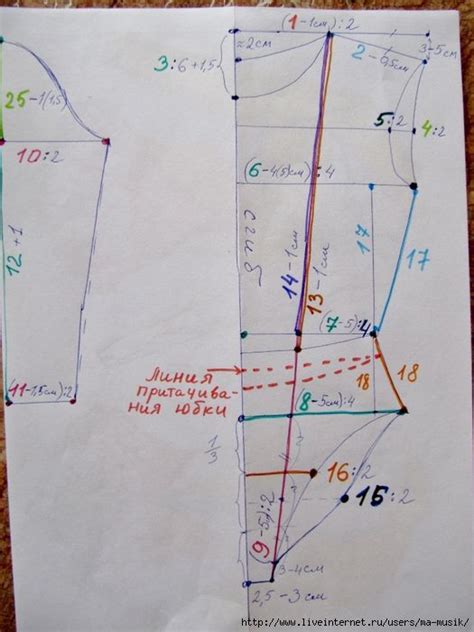 (1-1см):2
≈2см
3:6+1,5
2-0,5см
3-5см
25-1(1,5)
5:2
4:2
10:2
(6-4(5)см):4
сгиб
12+1
14-1см
13-1см
17
17
(7-5):4
Линия
притачива-
ния юбки
18
18
(11-1,5см):2
(8-5см):4
1/3
16:2
15:2
9-5):2
3-4см
2,5-3см
http://www.liveinternet.ru/users/ma-musik/